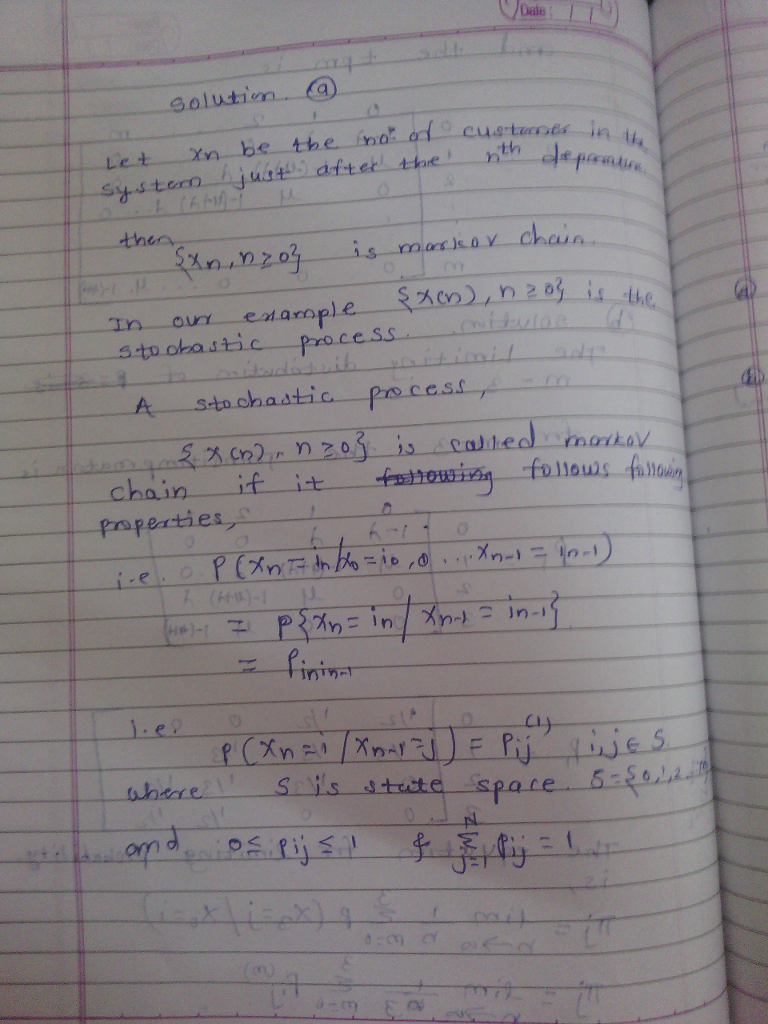 Date: / /
solution. (a)
Let Xn be the no. of customer in the
system just after the nth departure
then
{Xn, n ≥ 0} is markov chain.
In our example {X(n), n ≥ 0} is the
stochastic process.
A stochastic process,
{X(n), n ≥ 0} is called markov
chain if it following follows following
properties,
i.e. P(Xn = in/X0 = i0, 0 ... Xn-1 = in-1)
= P{Xn = in / Xn-1 = in-1}
= Pinin-1
i.e. P(Xn = i / Xn-1 = j) = Pij(1) i,j ∈ S.
where S is state space. S = {0,1,2
and 0 ≤ Pij ≤ 1 & Σ j=1 Pij = 1